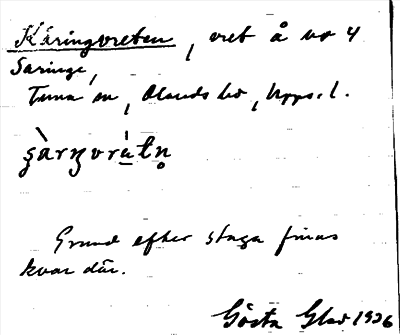 Käringvreten, vret å no 4
Saringe,
Tuna sn, Olands hd, Upps. l.
Grund efter stuga finns
kvar där.
Gösta Glad 1936